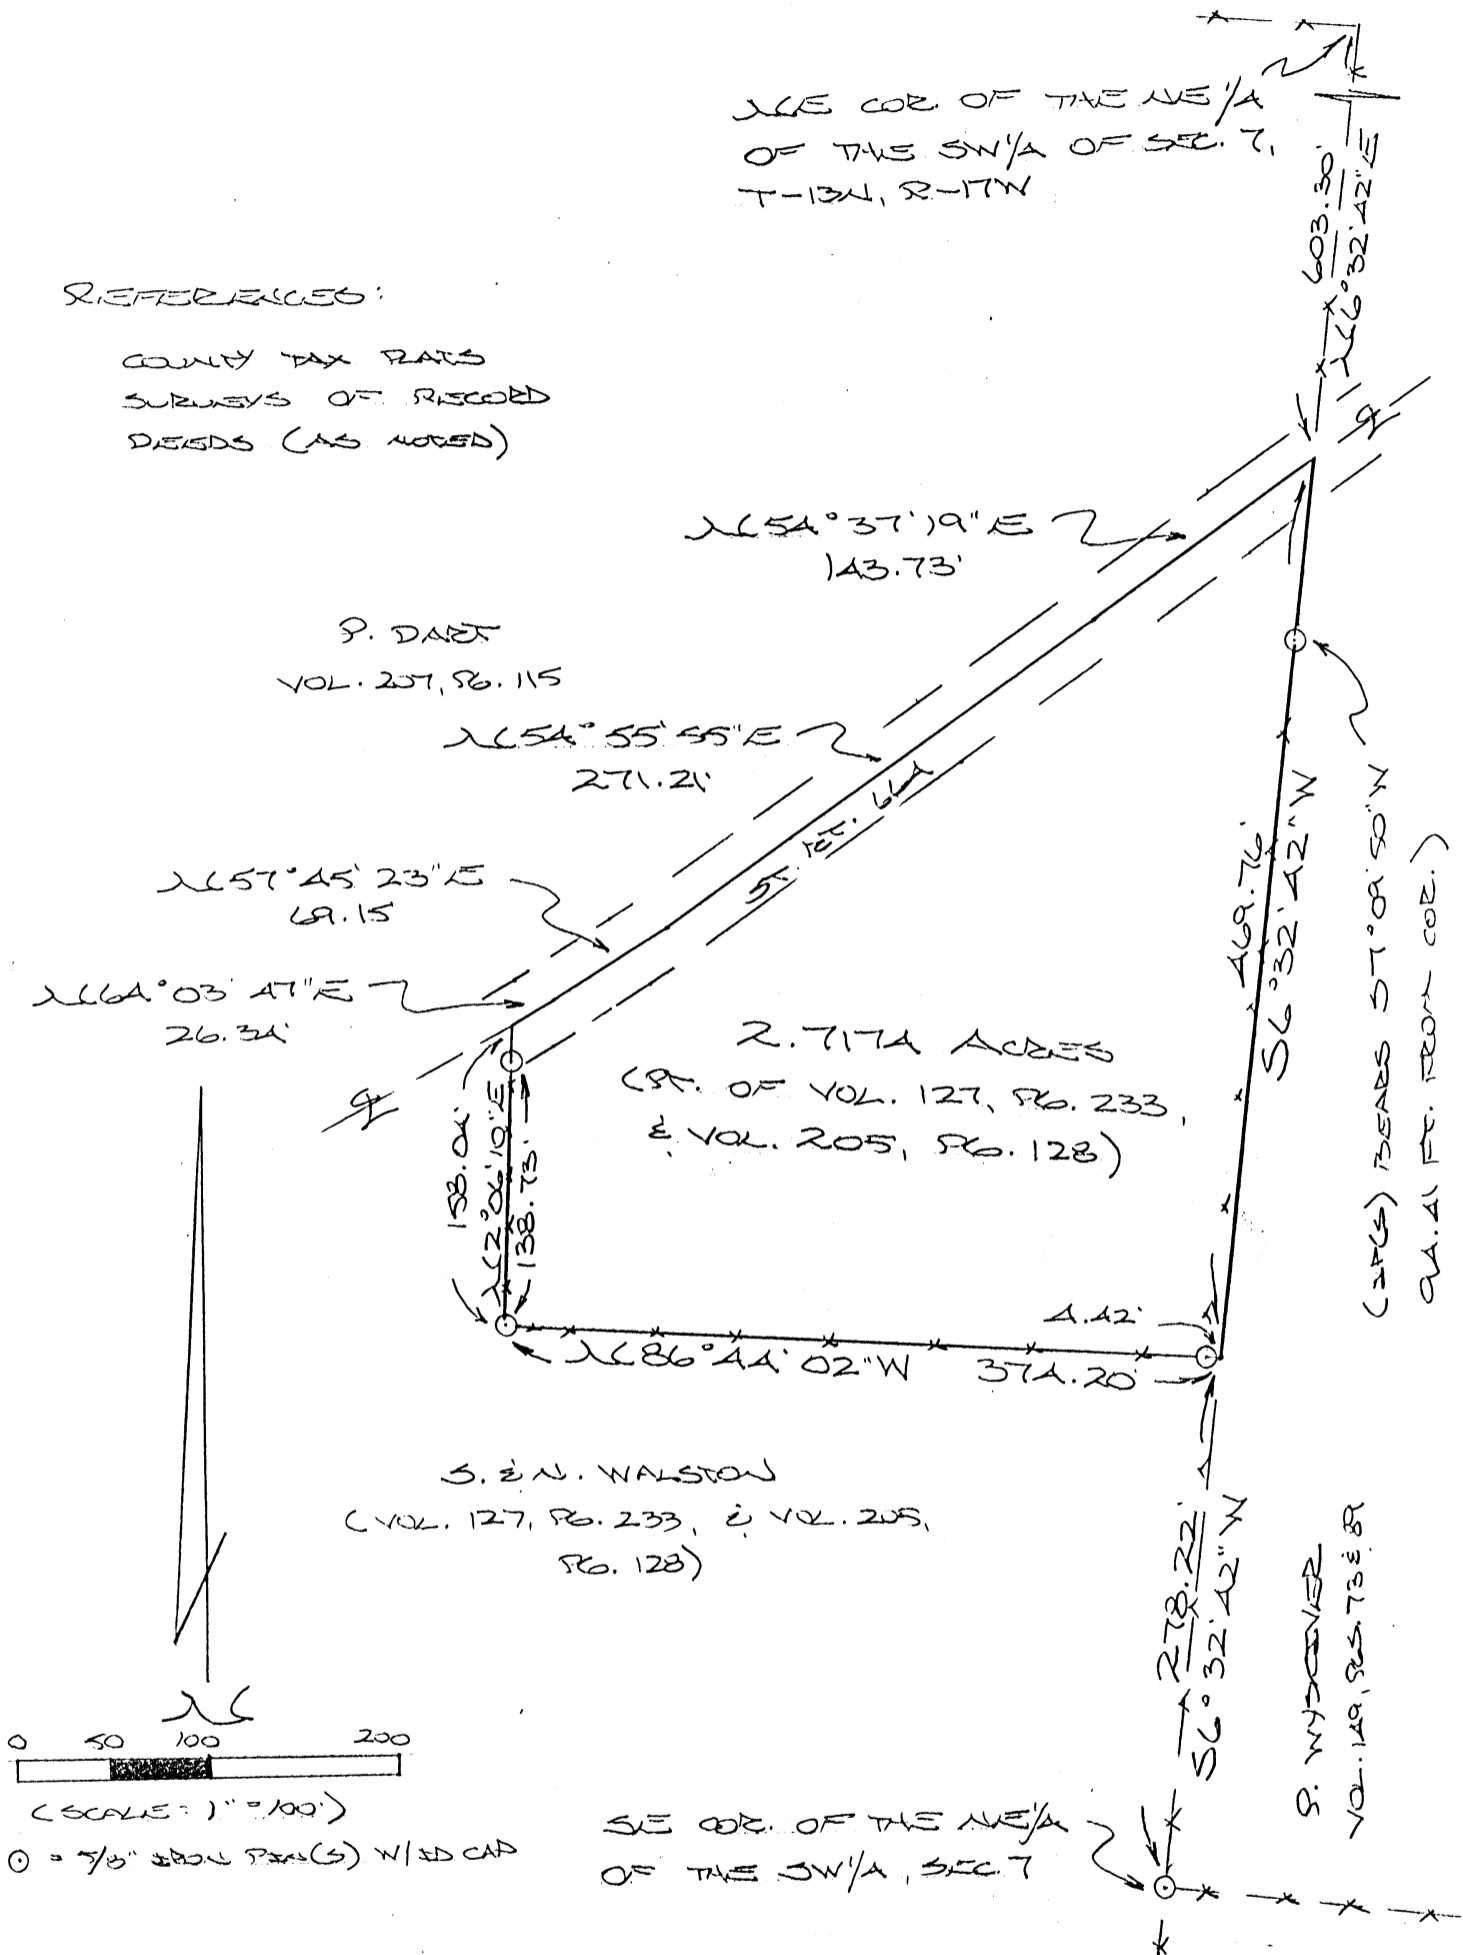 NE COR. OF THE NE 1/4
OF THE SW 1/4 OF SEC. 7,
T-13N, R-17W
603.30'
N6°32'42"E
REFERENCES:
COUNTY TAX PLATS
SURVEYS OF RECORD
DEEDS (AS NOTED)
N54°37'19"E
143.73'
P. DART
VOL. 207, PG. 115
N54°55'55"E
271.21'
ST. RT. 664
N57°45'23"E
69.15
N64°03'47"E
26.34'
℄
℄
469.76'
S6°32'42"W
(IP(S) BEARS S7°09'50"W
94.41 FT. FROM COR.)
2.7174 ACRES
(PT. OF VOL. 127, PG. 233,
& VOL. 205, PG. 128)
158.04'
N2°06'10"E
138.73'
4.42'
N86°44'02"W 374.20'
S. & N. WALSTON
(VOL. 127, PG. 233, & VOL. 205,
PG. 128)
278.22'
S6°32'42"W
VOL. 149, PGS. 73 & 89
N
0 50 100 200
(SCALE: 1" = 100')
⊙ = 5/8" IRON PIN(S) W/ID CAP
SE COR. OF THE NE 1/4
OF THE SW 1/4, SEC. 7